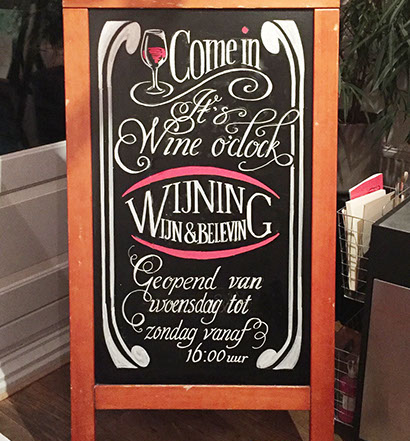 Come in
It's
Wine o'clock
WIJNING
WIJN & BELEVING
Geopend van
woensdag tot
zondag vanaf
16:00 uur